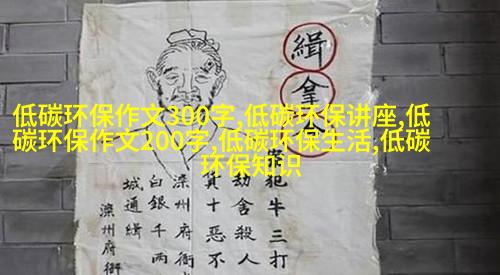 低碳环保作文300字,低碳环保讲座,低
碳环保作文200字,低碳环保生活,低碳
环保知识
緝
拿
案犯牛三打
劫舍殺人
真十惡不
滦州府衙
白銀千两
城通緝
滦州府衙